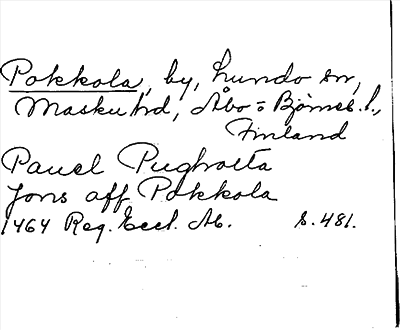 Pokkola, by, Lundo sn,
Masku hd, Åbo = Björneb. l.,
Finland
Pauel
Jons aff Pokkola
1464 Reg. Eccl. Ab. s. 481.